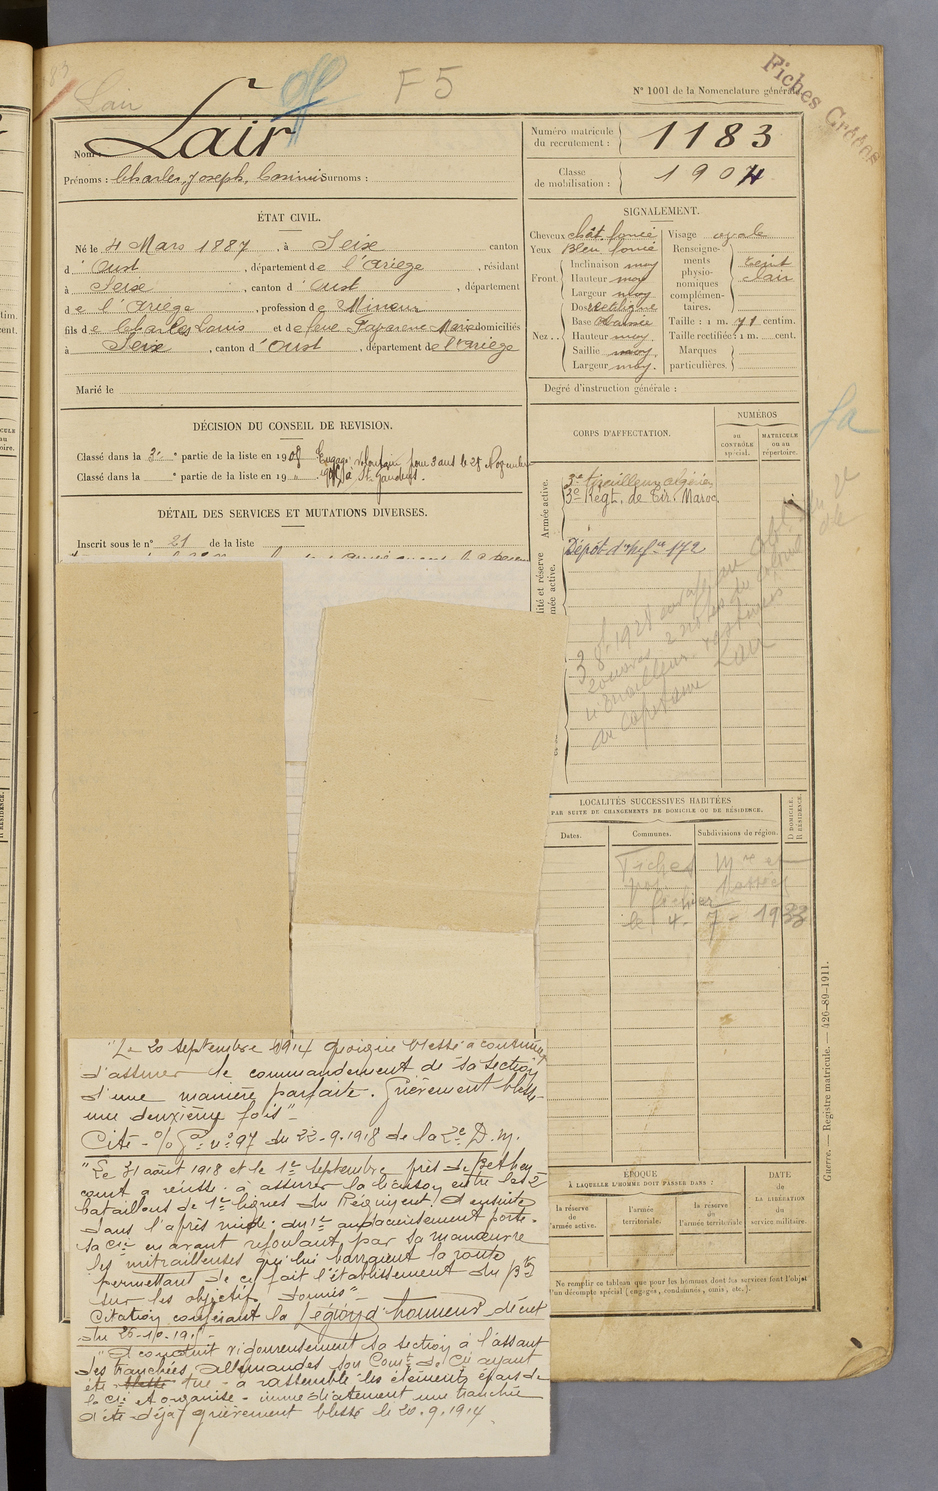 Lair
off
F 5
Nº 1001 de la Nomenclature générale
Fiches Créées
Nom : Lair
Prénoms : Charles, Joseph, Casimir Surnoms :
Numéro matricule du recrutement : 1183
Classe de mobilisation : 1904
ÉTAT CIVIL.
Né le 4 Mars 1887, à Seix canton
d'Oust, département de l'Ariège, résidant
à Seix, canton d'Oust, département
de l'Ariège, profession de Mineur
fils de Charles Louis et de feue Marie domiciliés
à Seix, canton d'Oust, département de l'Ariège
Marié le
SIGNALEMENT.
Cheveux chât. foncé Visage ovale
Yeux Bleu foncé
Front. Inclinaison moy
Hauteur moy
Largeur moy
Nez. Dos rectiligne
Base
Hauteur moy.
Saillie moy.
Largeur moy.
Renseignements physionomiques complémentaires. teint clair
Taille : 1 m. 71 centim.
Taille rectifiée : 1 m. cent.
Marques particulières.
Degré d'instruction générale :
DÉCISION DU CONSEIL DE REVISION.
Classé dans la 3e partie de la liste en 1908 Engagé volontaire pour 3 ans le 28 Novembre
Classé dans la " partie de la liste en 19 " à St Gaudens.
DÉTAIL DES SERVICES ET MUTATIONS DIVERSES.
Inscrit sous le nº 21 de la liste
CORPS D'AFFECTATION.
NUMÉROS
AU CONTRÔLE spécial.
MATRICULE ou au répertoire.
Armée active.
3e tirailleurs algérien
3e Régt. de Tir. Maroc.
Dépôt d'inf ie 172
fa
LOCALITÉS SUCCESSIVES HABITÉES
PAR SUITE DE CHANGEMENTS DE DOMICILE OU DE RÉSIDENCE.
Dates.
Communes.
Subdivisions de région.
D DOMICILE.
R RÉSIDENCE.
Fiches Mre et
le 4 - 7 - 1933
"Le 20 septembre 1914 quoique blessé a continué
d'assurer le commandement de sa section
d'une manière parfaite. Grièvement blessé
une deuxième fois"
Cité - O/ Gal nº 97 du 22-9-1918 de la 2e D. M.
"Le 31 août 1918 et le 1er septembre près de Bethen
court a réussi à assurer la liaison entre les 2
bataillons de 1e lignes du Régiment. A ensuite
dans l'après midi du 1er audacieusement porté
sa Cie en avant refoulant par sa manœuvre
les mitrailleuses qui lui barraient la route
permettant de ce fait l'établissement du Bton
sur les objectifs donnés"
Citation conférant la Légion d'honneur décret
du
"A conduit vigoureusement sa section à l'assaut
des tranchées Allemandes son Comt de Cie ayant
été tué - a rassemblé les éléments épars de
la Cie et organisé immédiatement une tranchée
A été déjà grièvement blessé le 20.9.1914.
ÉPOQUE
À LAQUELLE L'HOMME DOIT PASSER DANS :
la réserve de l'armée active.
l'armée territoriale.
la réserve de l'armée territoriale
DATE de LA LIBÉRATION du service militaire.
Ne remplir ce tableau que pour les hommes dont les services font l'objet
d'un décompte spécial (engagés, condamnés, omis, etc.).
Guerre. — Registre matricule. — 426-89-1911.